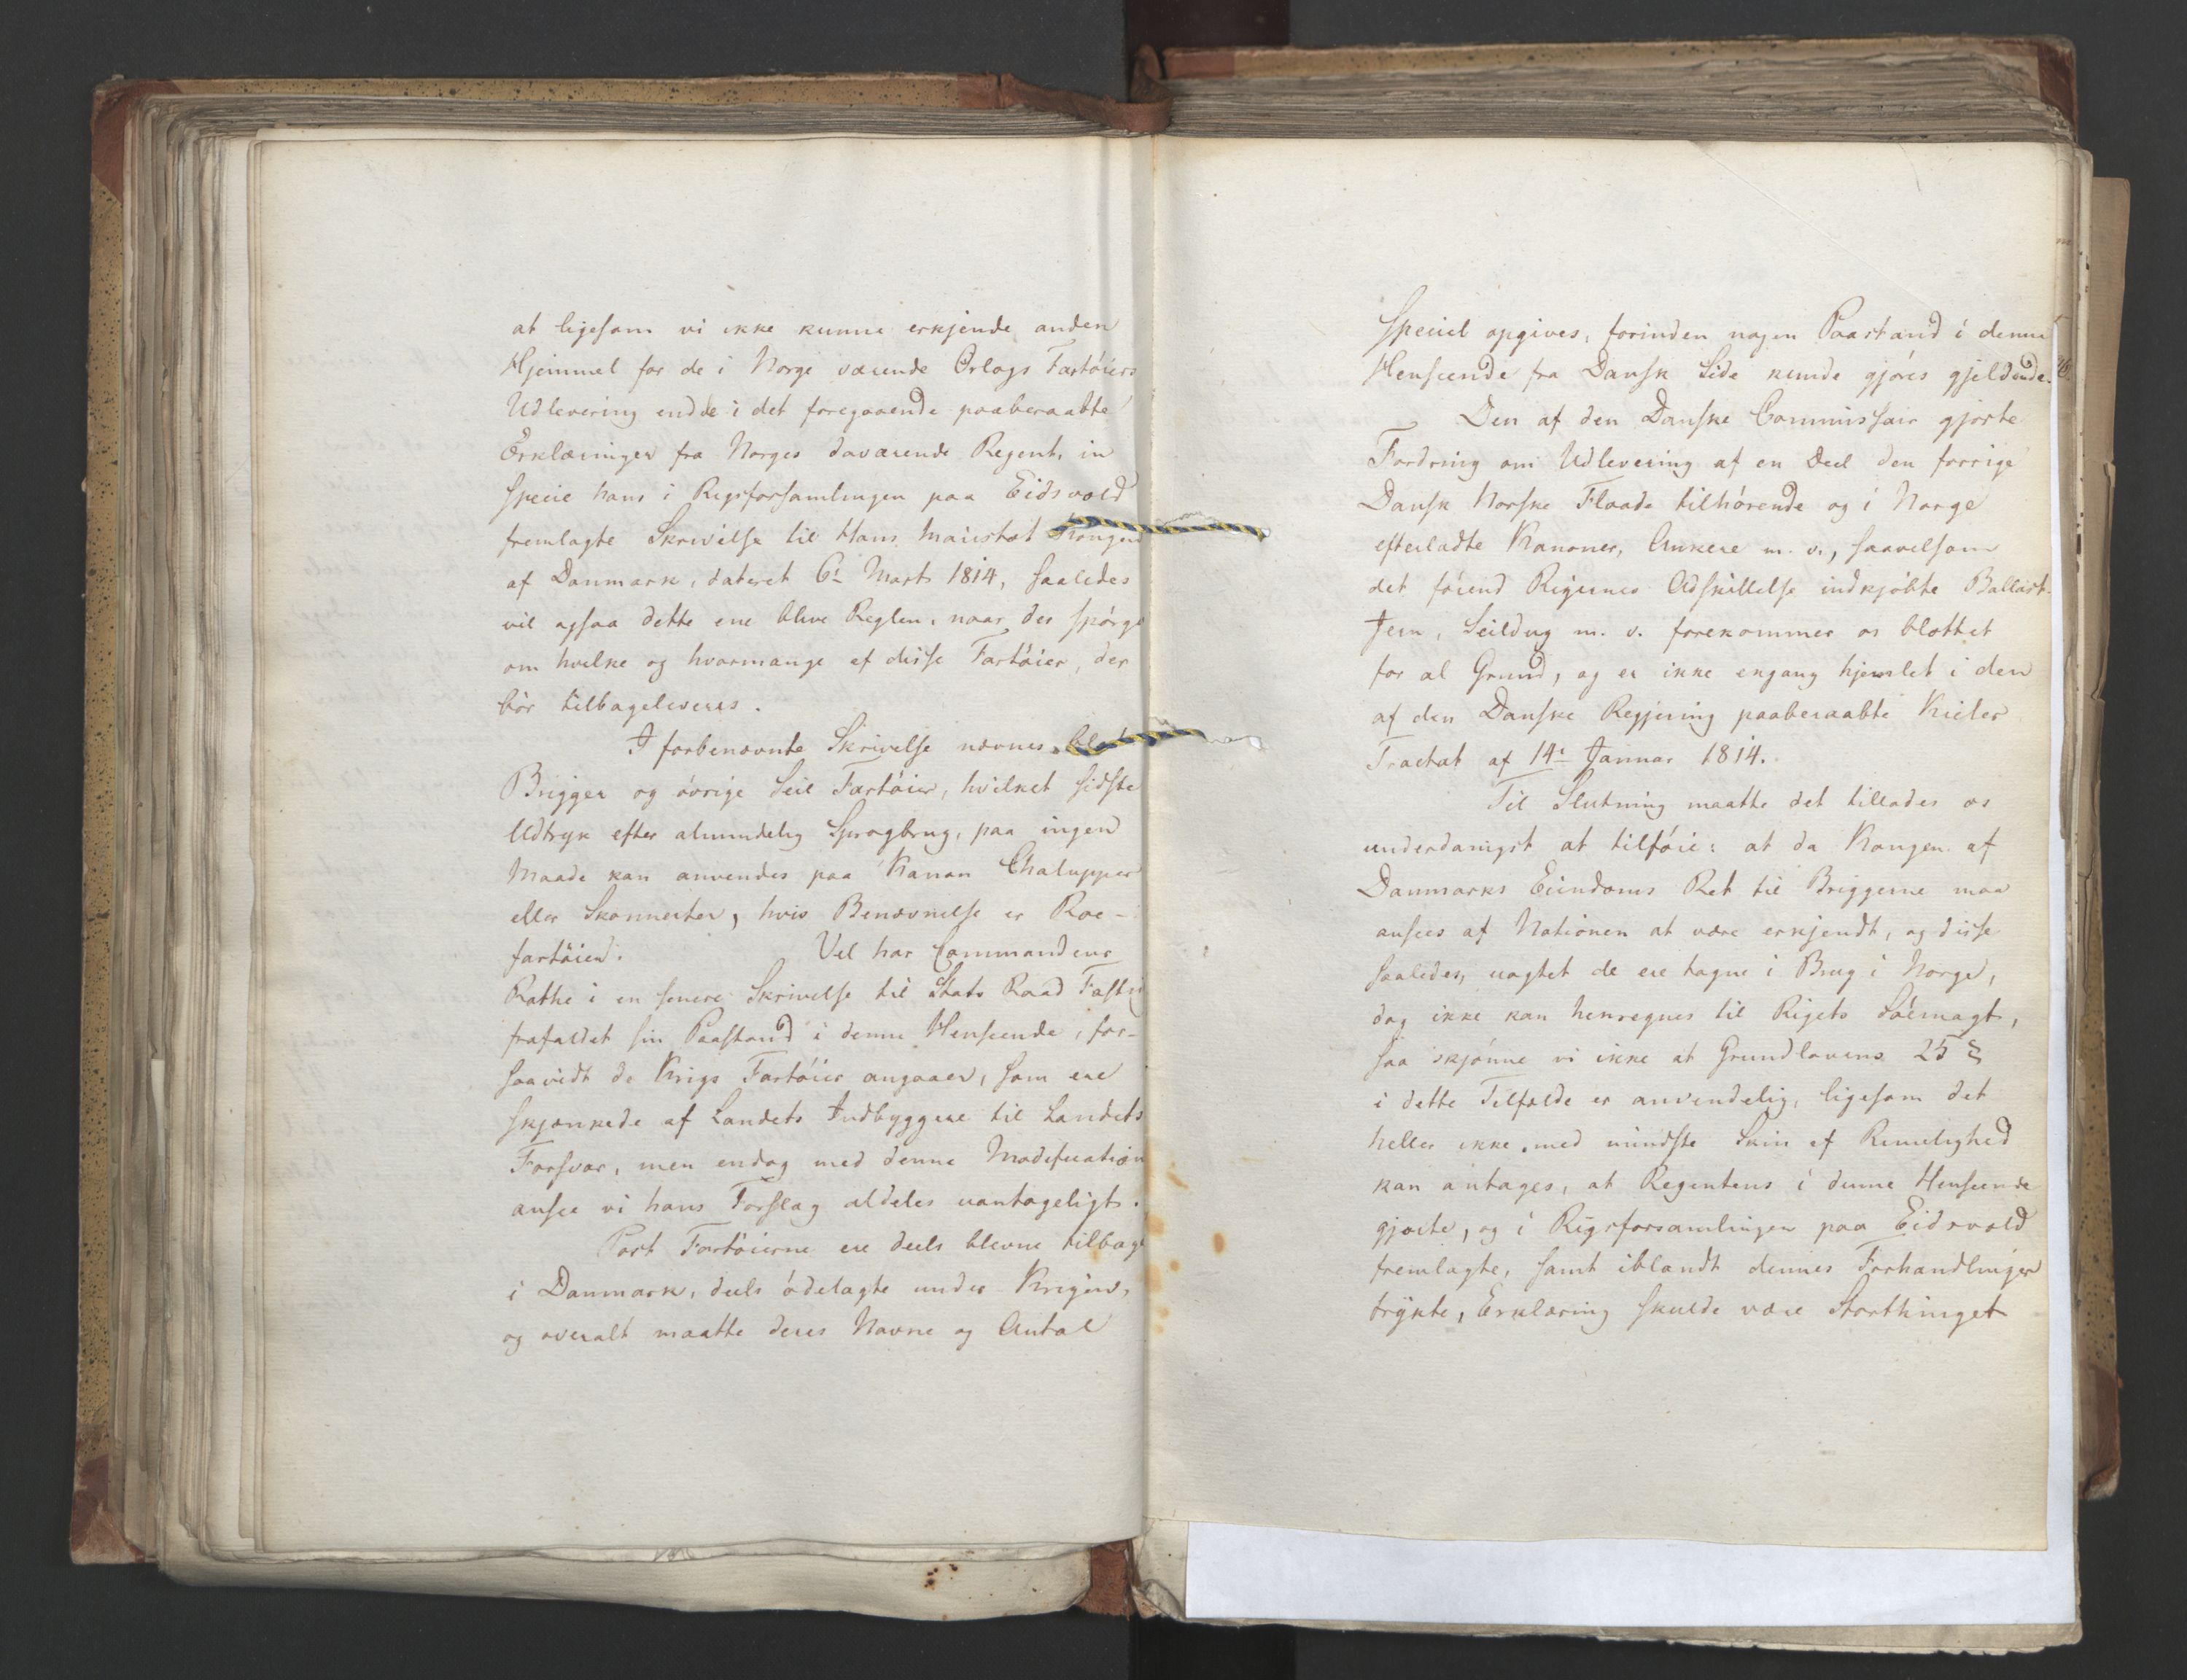 at ligesom vi ikke kunne erkjende anden
Hjemmel for de i Norge værende Orlogs Fartöiers
Udlevering endde i det foregaaende paaberaabte
Erklæringer fra Norges daværende Regent, in
specie hans i Rigsforsamlingen paa Eidsvold
fremlagte Skrivelse til Hans Maiestæt Kongen
af Danmark, dateret 6te Marts 1814, saaledes
vil ogsaa dette ene blive Reglen, naar der spörges
om hvilke og hvormange af disse Fartöier, der
bör tilbageleveres.
I forbenævnte Skrivelse nævnes blot
Brigger og övrige Seil Fartöier, hvilket sidste
Udtryk efter almindelig Sprogbrug, paa ingen
Maade kan anvendes paa Kanon Chalupper
eller Skonnerter, hvis Benævnelse er Roe-
fartöier. Vel har Commandeur
Rathe i en senere Skrivelse til Stats Raad Fasting
frafaldet sin Paastand i denne Henseende, for-
saavidt de Krigs Fartöier angaaer, som ere
skjænkede af Landets Indbyggere til Landets
Forsvar, men endog med denne Modification
ansee vi hans Forslag aldeles uantageligt.
Post Fartöierne ere deels blevne tilbage
i Danmark, deels ödelagte under Krigen,
og overalt maatte deres Navne og Antal
speciel opgives, forinden nogen Paastand i denne
Henseende fra Dansk Side kunde gjöres gjeldende.
Den af den Danske Commissair gjorte
Fordring om Udlevering af en Deel den forrige
Dansk Norske Flaade tilhörende og i Norge
efterladte Kanoner, Ankere m. v., saavelsom
det förend Rigernes Adskillelse indkjöbte Ballast-
Jern, Seildug m. v. forekommer os blottet
for al Grund, og er ikke engang hjemlet i den
af den Danske Regjering paaberaabte Kieler
Tractat af 14de Januar 1814.
Til Slutning maatte det tillades os
underdanigst at tilföie: at da Kongen af
Danmarks Eiendoms Ret til Briggerne maa
ansees af Nationen at være erkjendt, og disse
saaledes, uagtet de ere tagne i Brug i Norge,
dog ikke kan henregnes til Rigets Söemagt,
saa skjönne vi ikke at Grundlovens 25 §
i dette Tilfælde er anvendelig, ligesom det
heller ikke med mindste Skin af Rimelighed
kan antages, at Regentens i denne Henseende
gjorte, og i Rigsforsamlingen paa Eidsvold
fremlagte, samt iblandt dennes Forhandlinger
trykte, Erklæring skulde være Storthinget